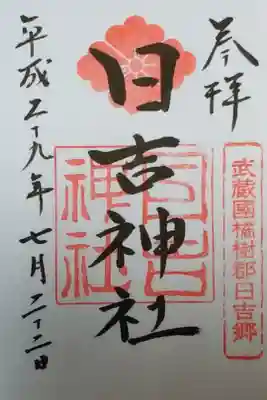 奉拝
武蔵國橘樹郡日吉郷
日吉神社
日吉神社
平成二十九年七月二十二日